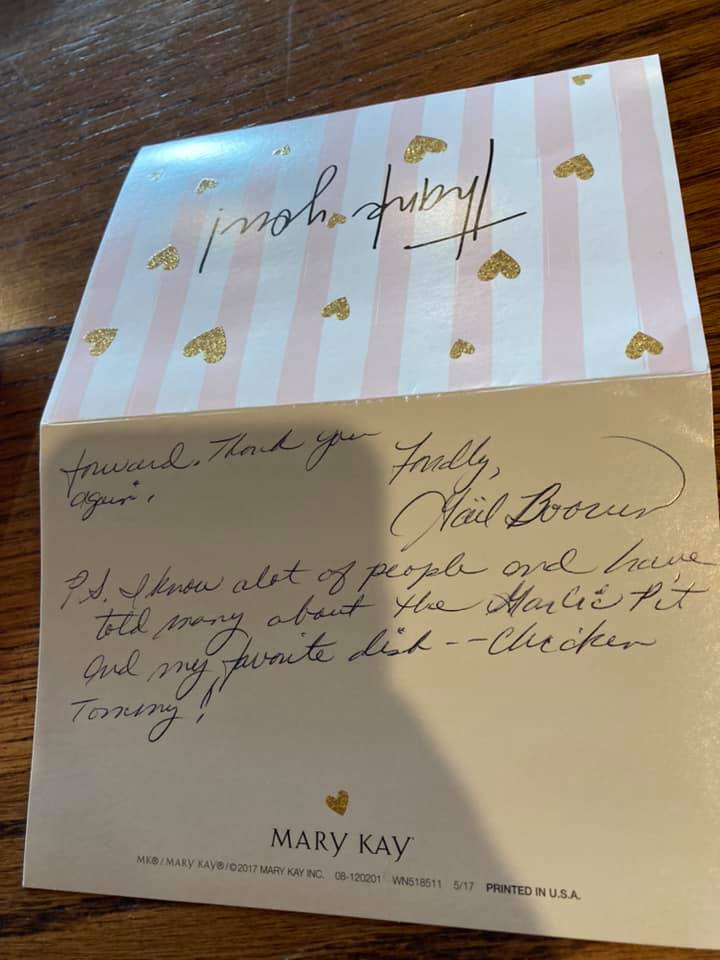 Thank you!
forward. Thank you
again.
Fondly,
Gail
P.S. I know alot of people and have
told many about the Garlic Pit
and my favorite dish -- Chicken
Tommy!
MARY KAY
MK® / MARY KAY® / ©2017 MARY KAY INC. 08-120201 WN518511 5/17 PRINTED IN U.S.A.